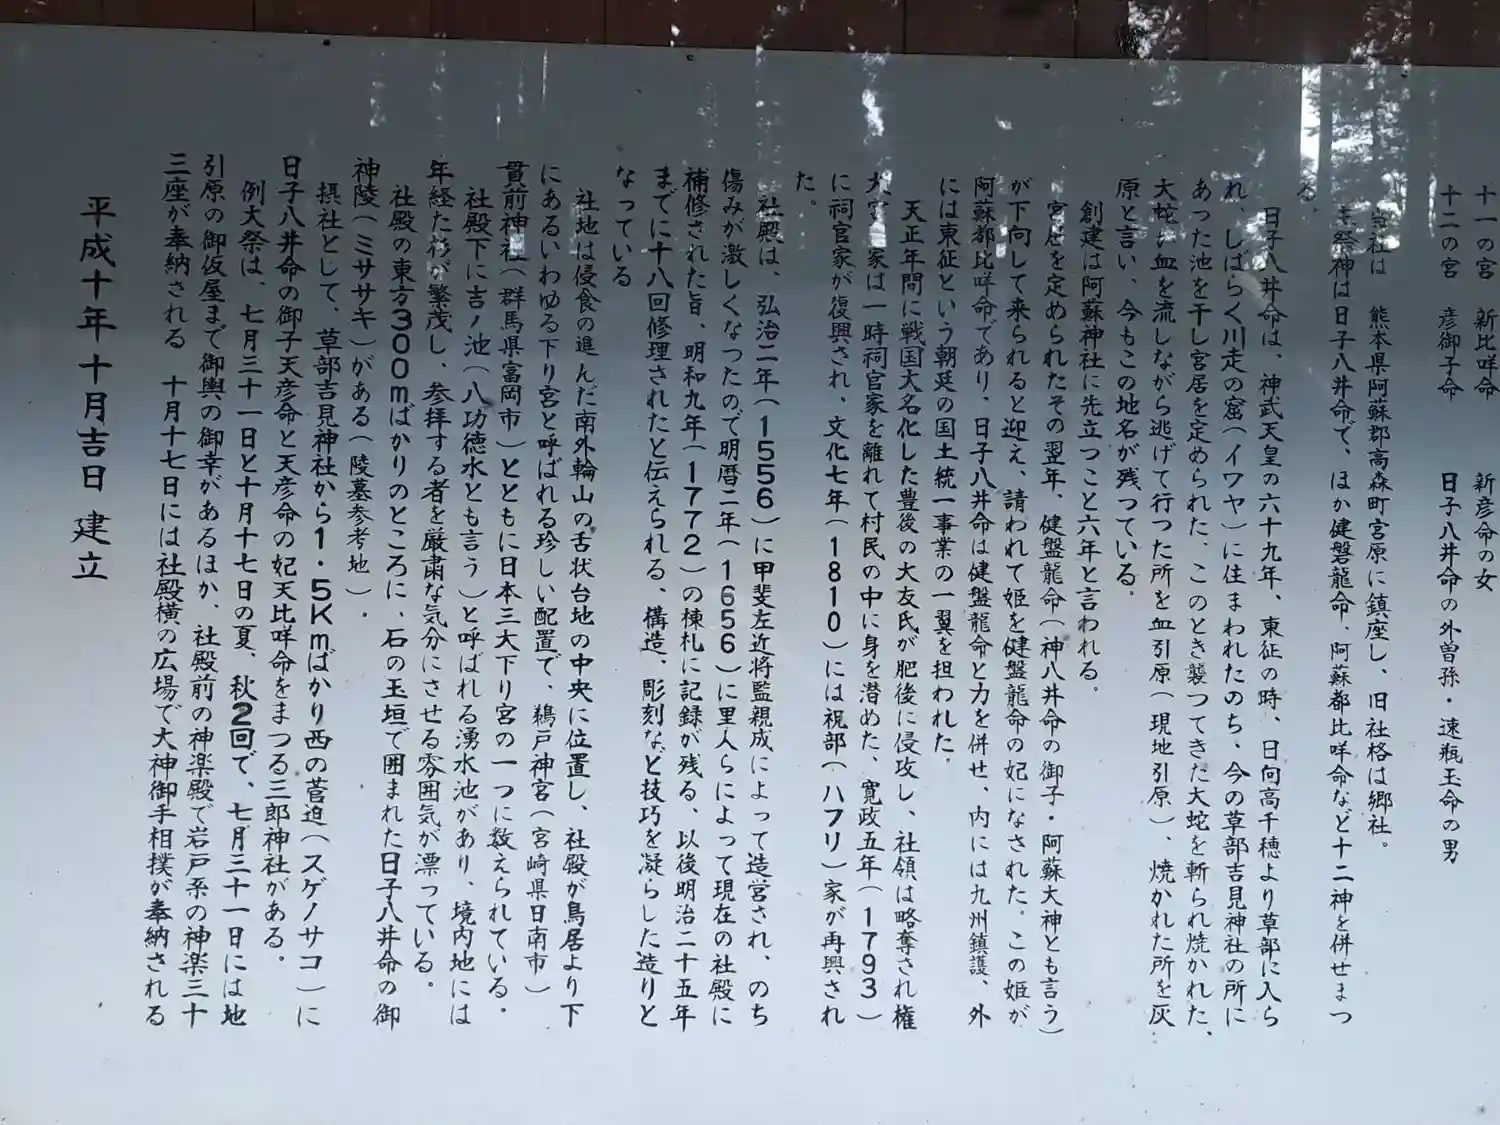 十一の宮　新比咩命　新彦命の女
十二の宮　彦御子命　日子八井命の外曽孫・速瓶玉命の男
社は　熊本県阿蘇郡高森町宮原に鎮座し、旧社格は郷社。
祭神は日子八井命で、ほか健磐龍命、阿蘇都比咩命など十二神を併せまつ
る。
日子八井命は、神武天皇の六十九年、東征の時、日向高千穂より草部に入ら
れ、しばらく川走の窟（イワヤ）に住まわれたのち、今の草部吉見神社の所に
あった池を干し宮居を定められた、このとき襲つてきた大蛇を斬られ焼かれた、
大蛇が血を流しながら逃げて行つた所を血引原（現地引原）、焼かれた所を灰
原と言い、今もこの地名が残つている。
創建は阿蘇神社に先立つこと六年と言われる。
宮居を定められたその翌年、健盤龍命（神八井命の御子・阿蘇大神とも言う）
が下向して来られると迎え、請われて姫を健盤龍命の妃になされた。この姫が
阿蘇都比咩命であり、日子八井命は健盤龍命と力を併せ、内には九州鎮護、外
には東征という朝廷の国土統一事業の一翼を担われた。
天正年間に戦国大名化した豊後の大友氏が肥後に侵攻し、社領は略奪され権
大宮司家は一時祠官家を離れて村民の中に身を潜めた、寛政五年（１７９３）
に祠官家が復興され、文化七年（１８１０）には祝部（ハフリ）家が再興され
た。
社殿は、弘治二年（１５５６）に甲斐左近将監親成によって造営され、のち
傷みが激しくなつたので明暦二年（１６５６）に里人らによって現在の社殿に
補修された旨、明和九年（１７７２）の棟札に記録が残る、以後明治二十五年
までに十八回修理されたと伝えられる、構造、彫刻など技巧を凝らした造りと
なっている
社地は侵食の進んだ南外輪山の舌状台地の中央に位置し、社殿が鳥居より下
にあるいわゆる下り宮と呼ばれる珍しい配置で、鵜戸神宮（宮崎県日南市）
貫前神社（群馬県富岡市）とともに日本三大下り宮の一つに数えられている・
社殿下に吉ノ池（八功徳水とも言う）と呼ばれる湧水池があり、境内地には
年経た杉が繁茂し、参拝する者を厳粛な気分にさせる雰囲気が漂っている。
社殿の東方３００ｍばかりのところに、石の玉垣で囲まれた日子八井命の御
神陵（ミササキ）がある（陵墓参考地）．
摂社として、草部吉見神社から１・５Ｋｍばかり西の菅迫（スゲノサコ）に
日子八井命の御子天彦命と天彦命の妃天比咩命をまつる三郎神社がある。
例大祭は、七月三十一日と十月十七日の夏、秋２回で、七月三十一日には地
引原の御仮屋まで御輿の御幸があるほか、社殿前の神楽殿で岩戸系の神楽三十
三座が奉納される　十月十七日には社殿横の広場で大神御手相撲が奉納される
平成十年十月吉日　建立